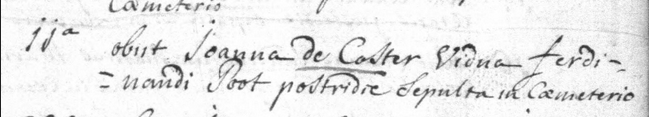 Cæmeterio
11a obiit Joanna de Caster Vidua ferdi=
=nandi Poot postridie Sepulta in Cæmeterio